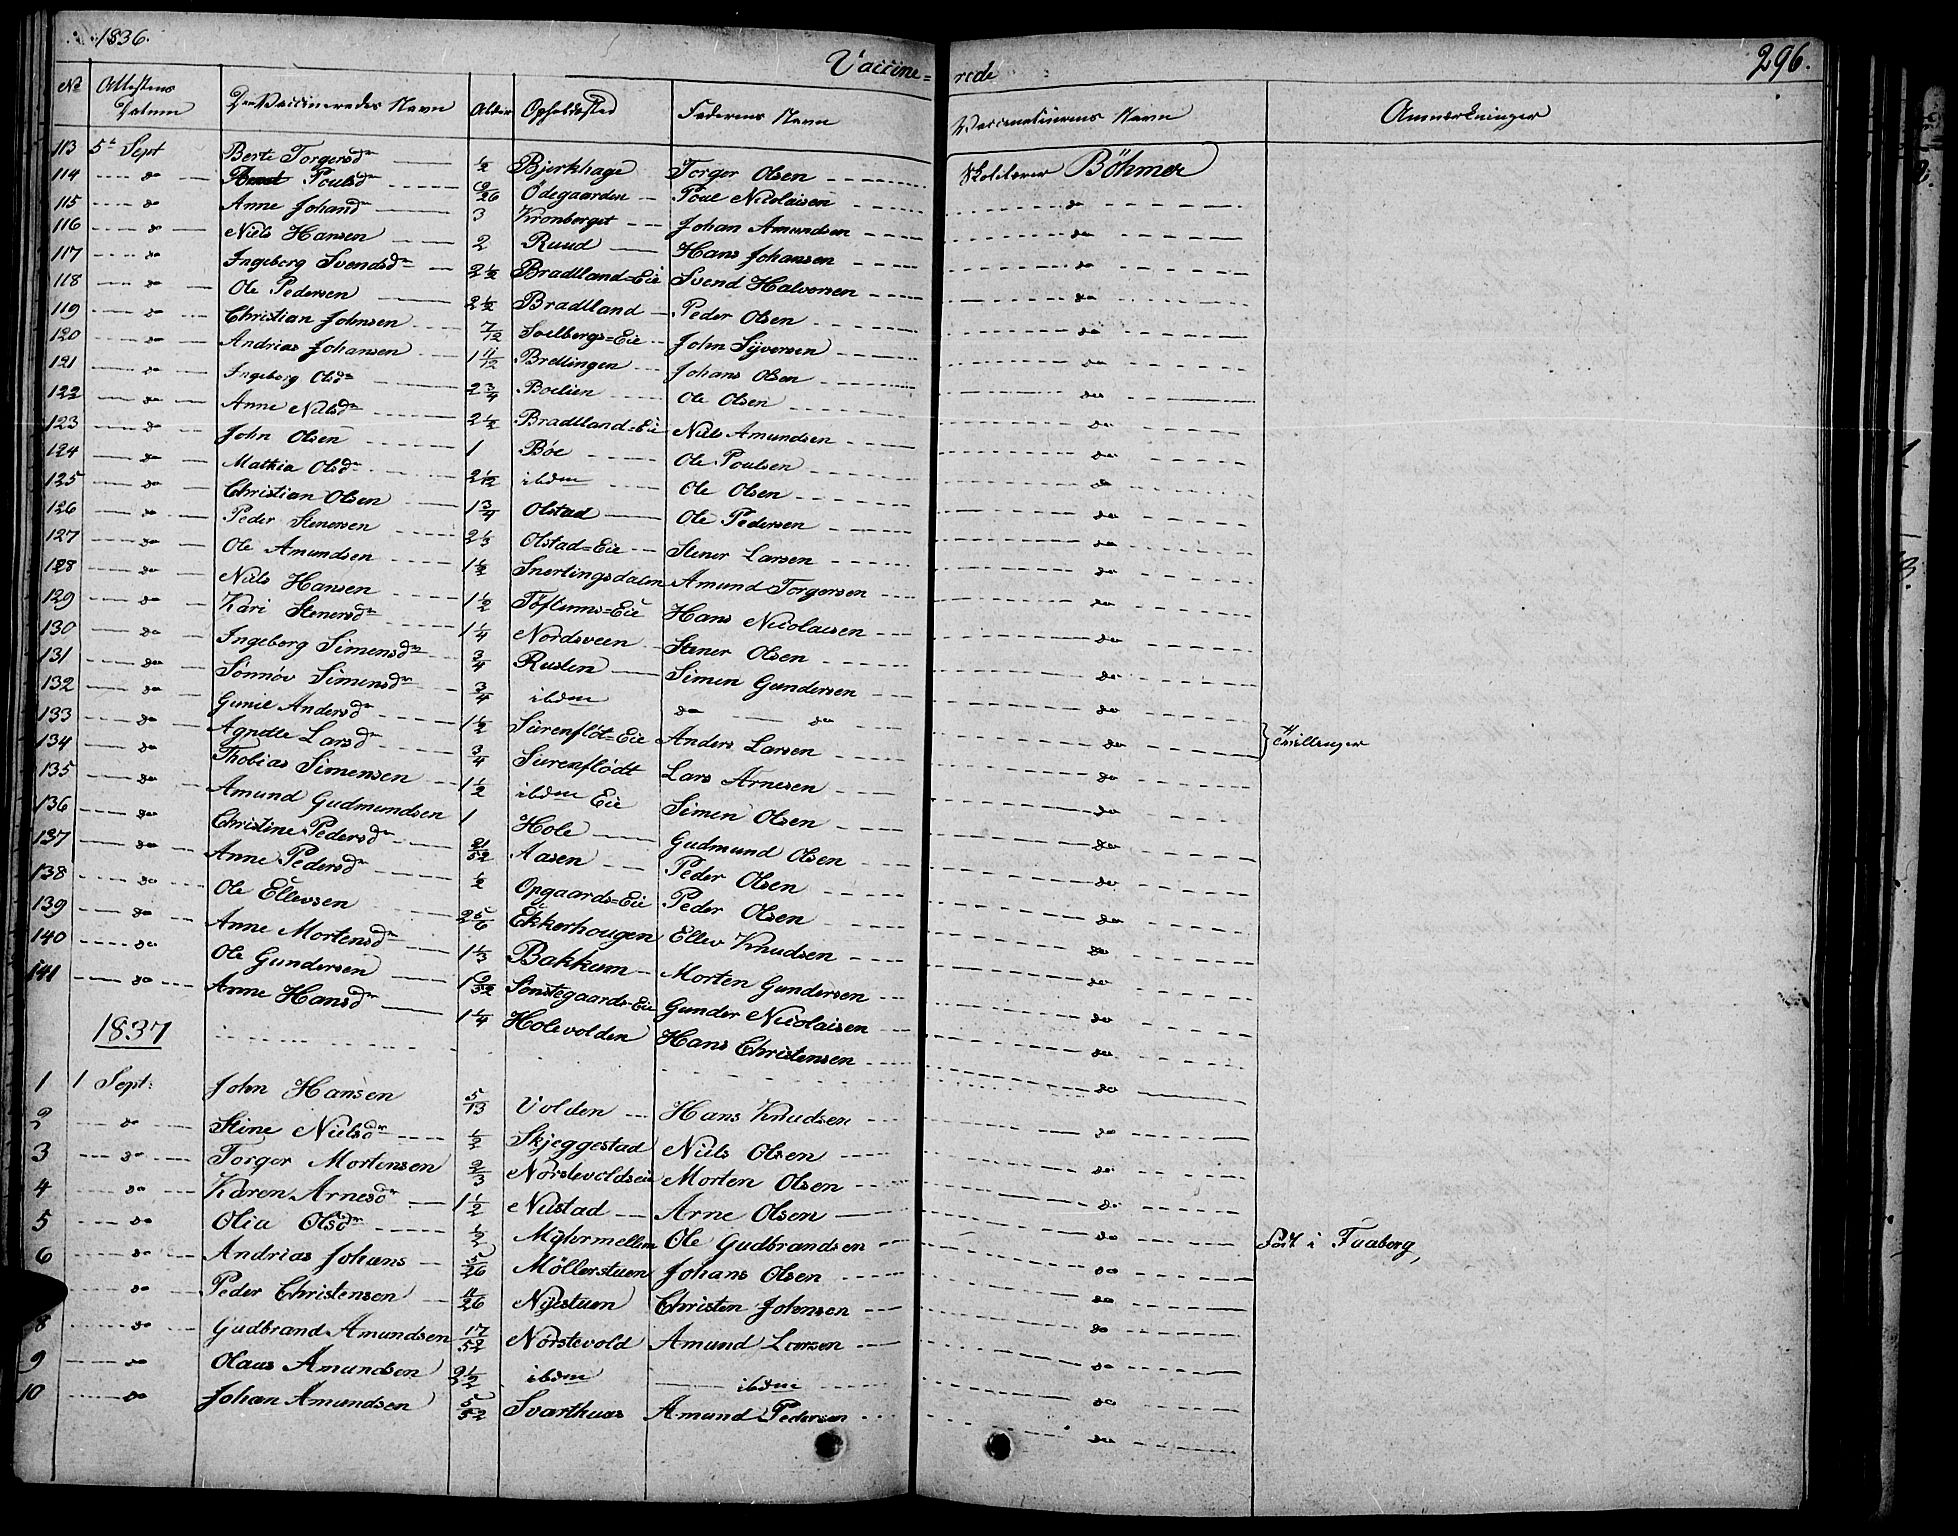 1836.
Vaccine=rede
296.
No Attestens Datum Den Vaccineredes Navn Alder Opholdssted Faderens Navn Vaccinateurens Navn Anmærkninger
113 5t Sept Berte Torgersdr ½ Bjerkhage Torger Olsen Böhmer
114 do Poulsdr 9/26 Ödegaarden Poul Nicolaisen do
115 do Anne Johansdr 3 Kronberget Johan Amundsen do
116 do Niels Hansen 2 Ruud Hans Johansen do
117 do Ingeborg Svendsdr 2½ Bradtland=Eie Svend Halvorsen do
118 do Ole Pedersen 2½ Bradtland Peder Olsen do
119 do Christian Johnsen 7/12 Soelbergs=Eie John Syversen do
120 do Andrias Johansen 1 11/12 Bretlingen Johans Olsen do
121 do Ingeborg Olsdr 2¾ Boelien Ole Olsen do
122 do Anne Nielsdr 2½ Bradtland=Eie Niels Amundsen do
123 do John Olsen 1 Böe Ole Poulsen do
124 do Mathia Olsdr 2½ ibdm Ole Olsen do
125 do Christian Olsen 1¾ Olstad Ole Pedersen do
126 do Peder Stenersen 2⅓ Olstad=Eie Stener Larsen do
127 do Ole Amundsen 1½ Snertingsdalen Amund Torgersen do
128 do Niels Hansen 1½ Töftums=Eie Hans Nicolaisen do
129 do Kari Stenersdr 1¼ Nordsveen Stener Olsen do
130 do Ingeborg Simensdr ¾ Rusten Simen Gundersen do
131 do Sönnöv Simensdr ¾ ibdm do do do Tvillinger
132 do Gunil Andersdr 1½ Surenflöt=Eie Anders Larsen do
133 do Agnethe Larsdr ¾ Surenflödt Lars Arnesen do
134 do Thobias Simensen 1½ ibdm Eie Simen Olsen do
135 do Amund Gudmundsen 1 Hole Gudmund Olsen do
136 do Christine Pedersdr 21/52 Aasen Peder Olsen do
137 do Anne Pedersdr ½ Opgaards=Eie Peder Olsen do
138 do Ole Ellevsen 2 5/6 Ekkerhougen Ellev Knudsen do
139 do Anne Mortensdr 1⅓ Bakkum Morten Gundersen do
140 do Ole Gundersen 1 9/52 Sönstegaards=Eie Gunder Nicolaisen do
141 do Anne Hansdr 1¼ Holevolden Hans Christensen do
1837
1 1 Sept: John Hansen 5/13 Volden Hans Knudsen do
2 do Stine Nielsdr ½ Skjeggestad Niels Olsen do
3 do Torger Mortensen ⅔ Nörstevoldseie Morten Olsen do
4 do Karen Arnesdr 1½ Nustad Arne Olsen do
5 do Olia Olsdr ½ Myhrmellem Ole Gudbrandsen do Föd i Faaberg,
6 do Andrias Johans 5/26 Möllerstuen Johans Olsen do
do Peder Christensen 11/26 Nyestuen Christen Johnsen do
8 do Gudbrand Amundsen 17/52 Nörstevold Amund Larsen do
9 do Olaus Amundsen 2½ ibdm ibdm do
10 do Johan Amundsen 5/52 Svarthuus Amund Pedersen do